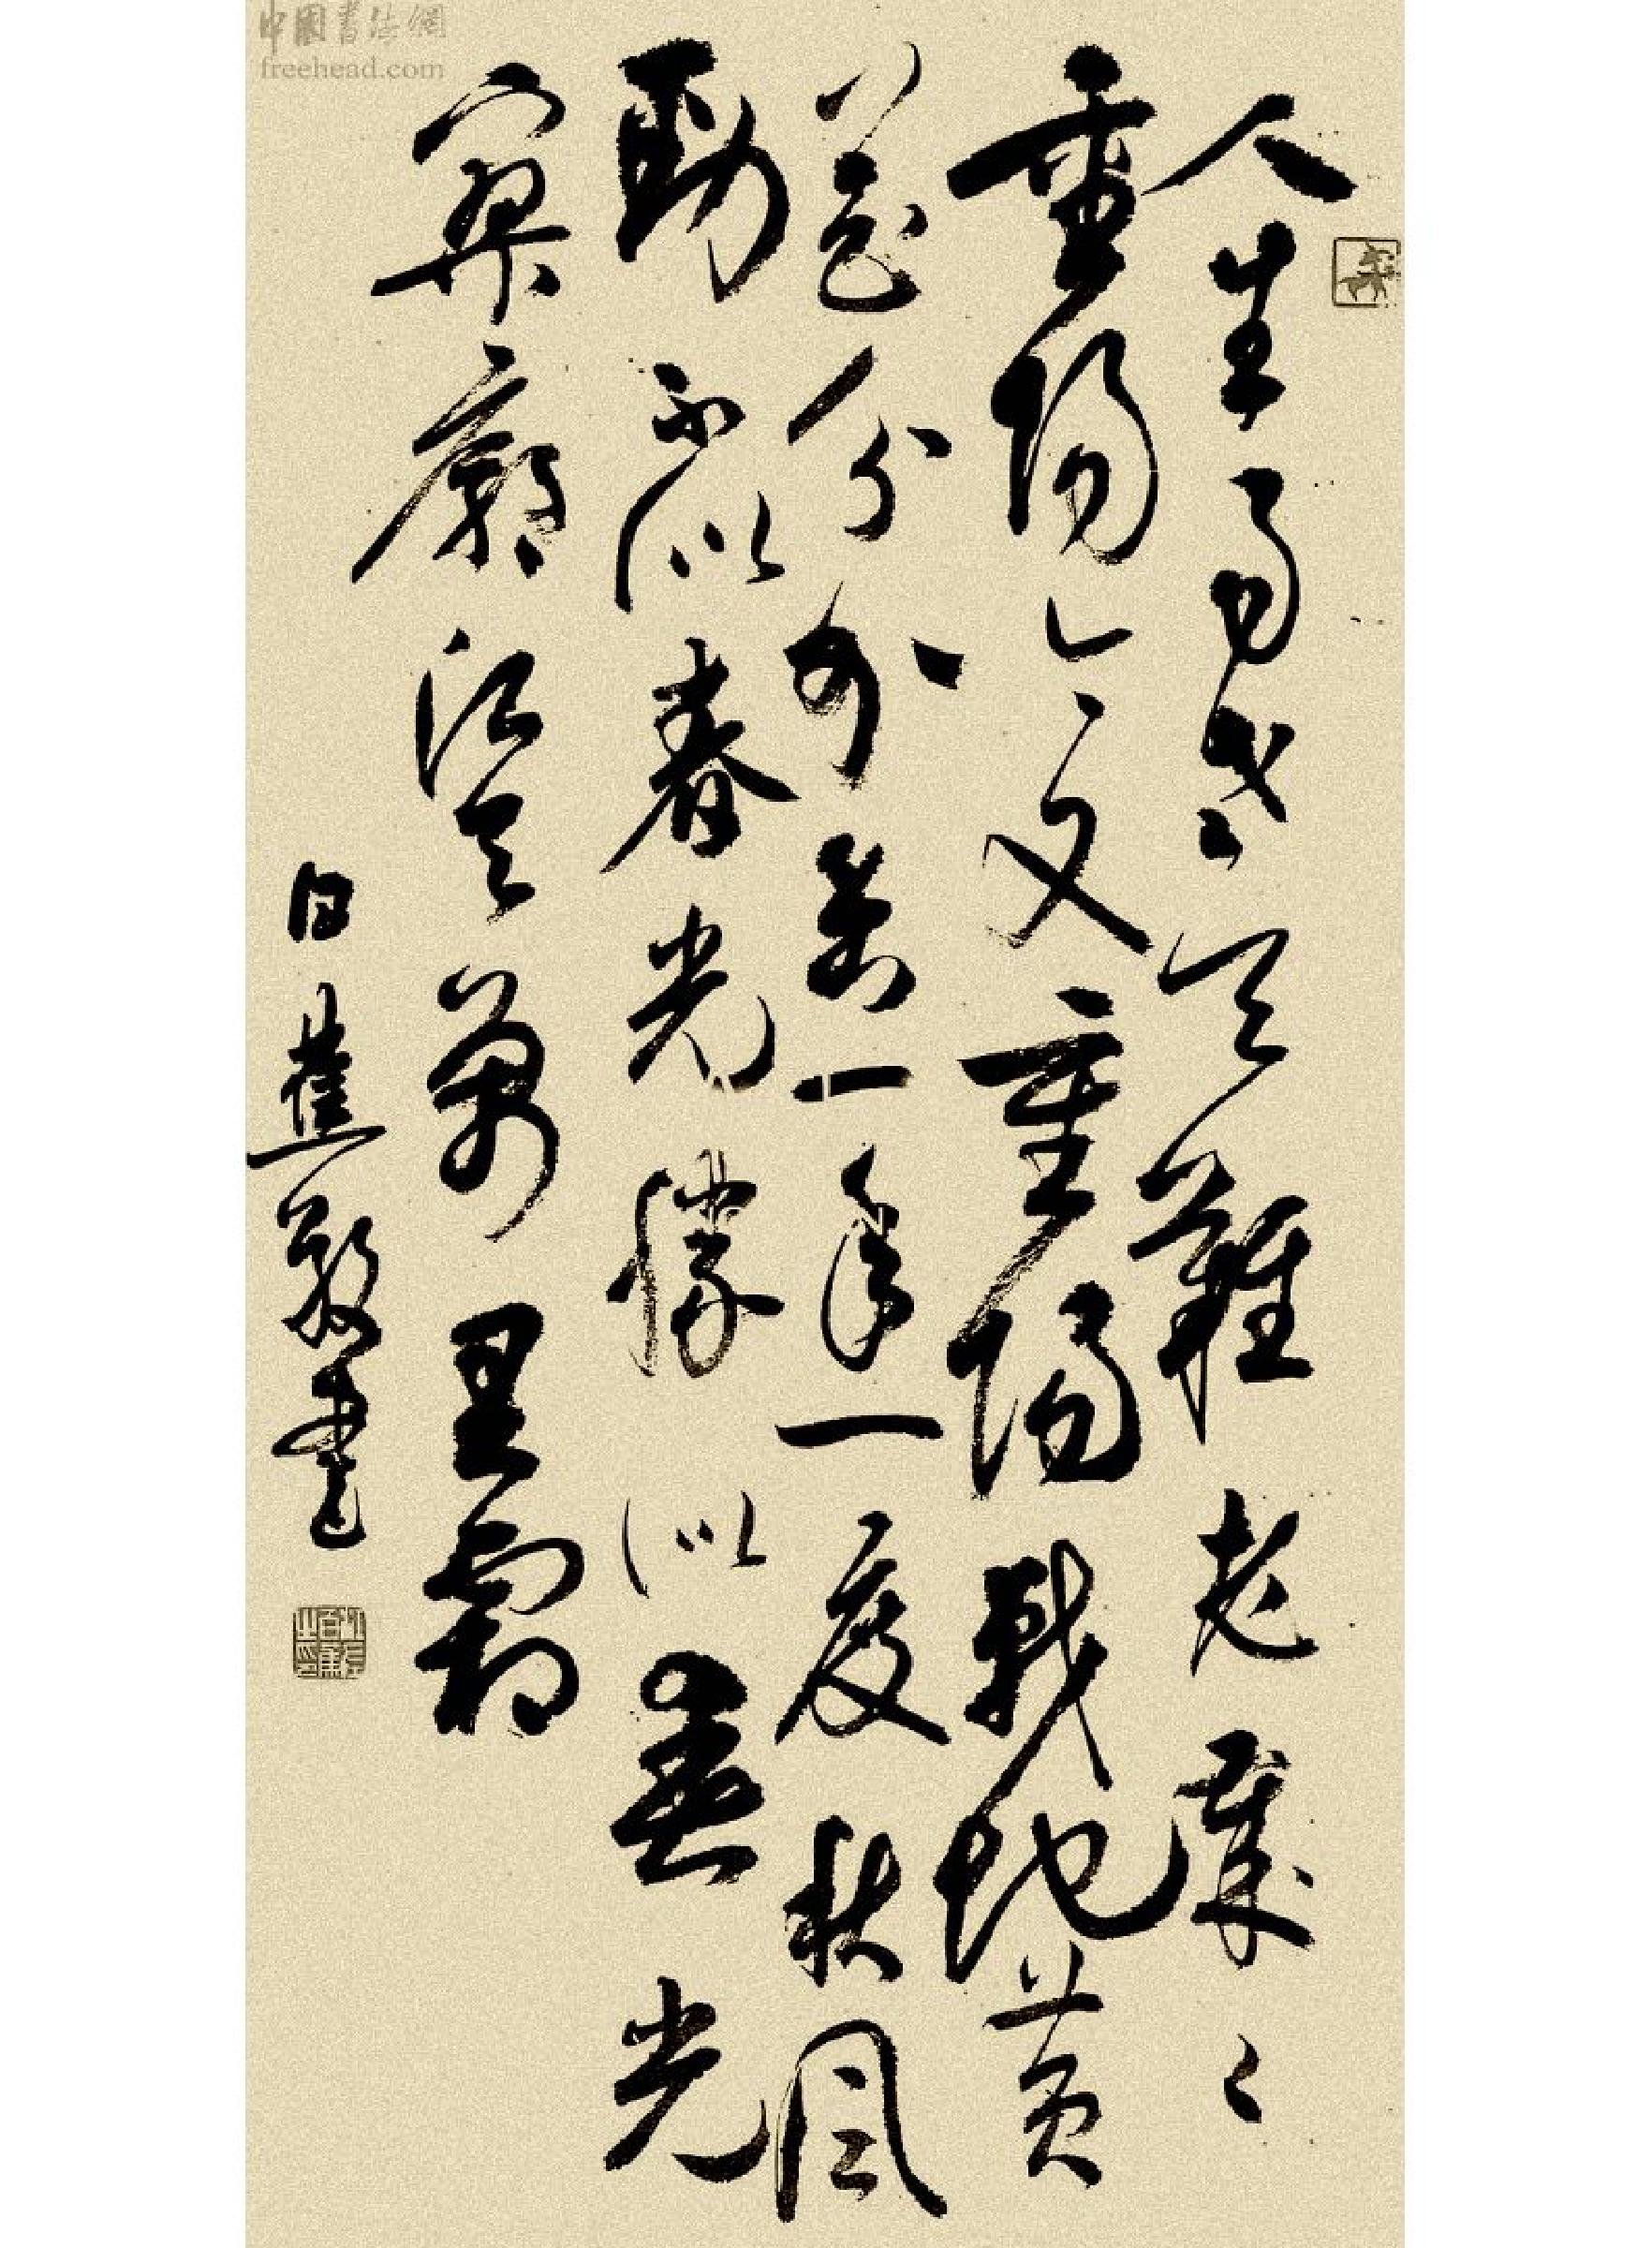 中國書法網
freehead.com
人生易老天難老歲々
重陽今又重陽戰地黄
花分外香一年一度秋風
勁不似春光勝似春光
寥廓江天萬里霜
白蕉敬書